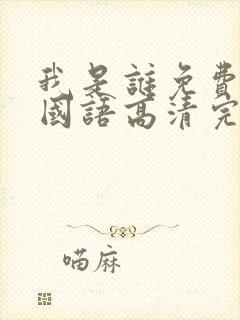 我是誰免費
國語高清完
喵麻